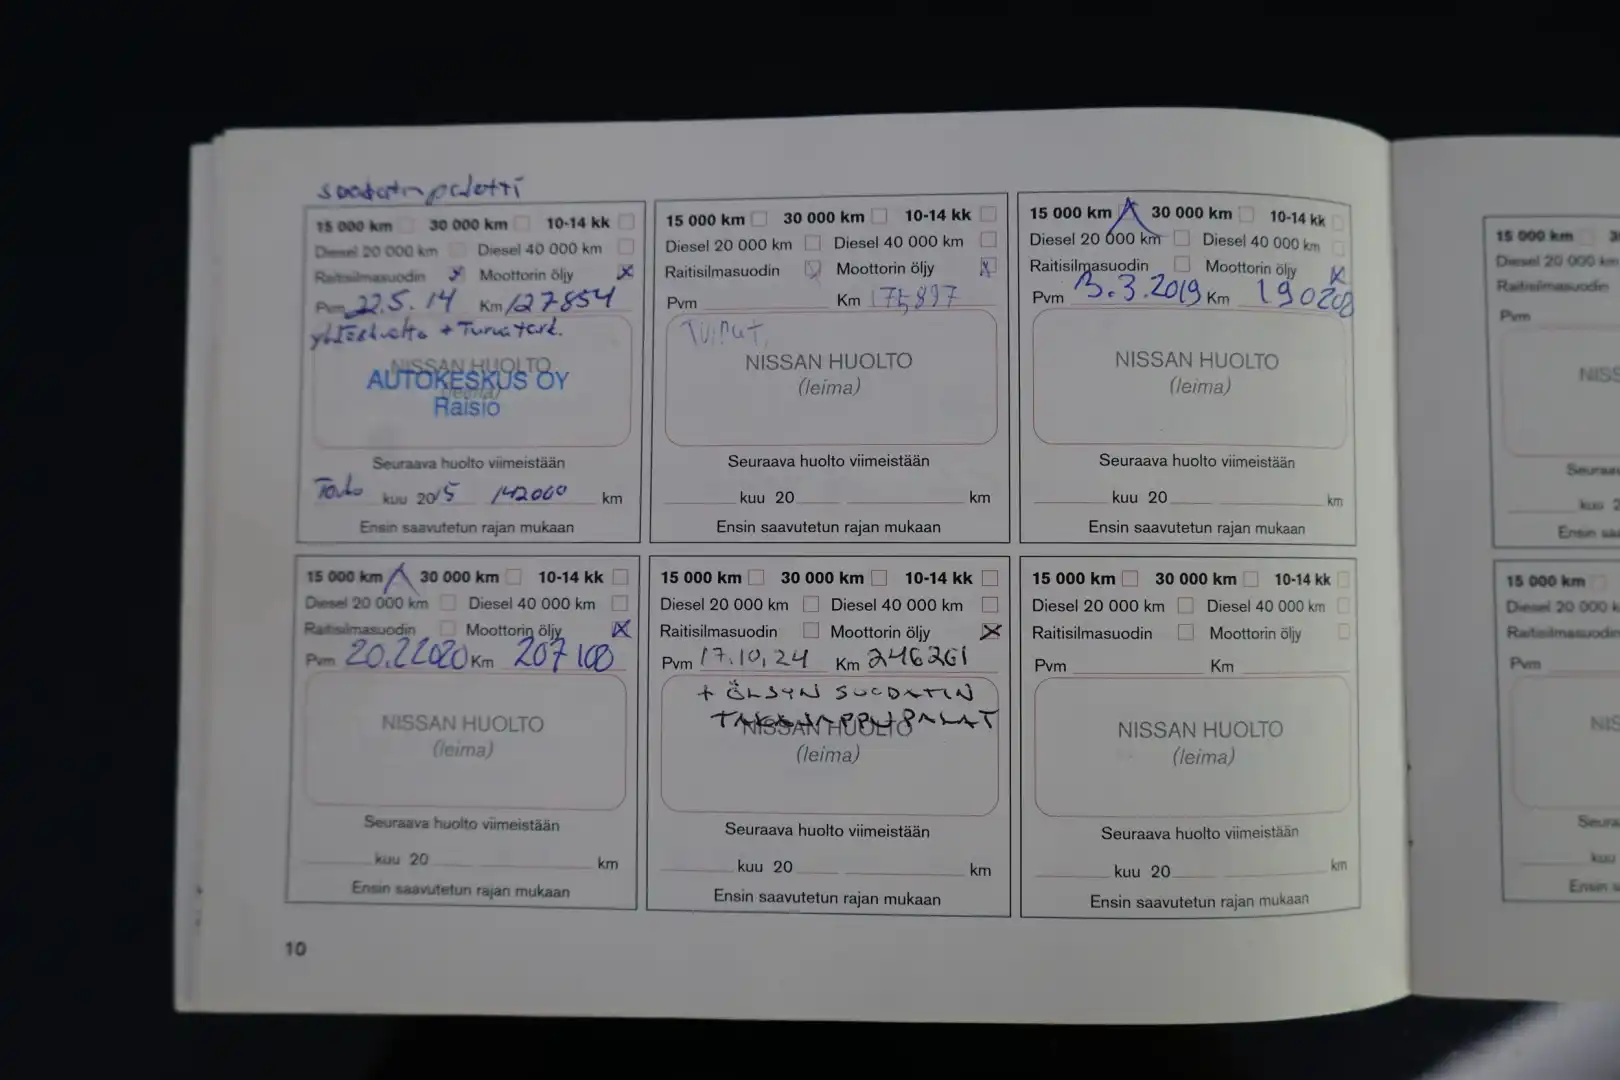 suodatinpaketti
15 000 km 30 000 km 10-14 kk
Diesel 20 000 km Diesel 40 000 km
Raitisilmasuodin x Moottorin öljy x
Pvm 22.5.14 Km 127854
yhteishuolto + Turvatark.
NISSAN HUOLTO
(leima)
AUTOKESKUS OY
Raisio
Seuraava huolto viimeistään
Touko kuu 2015 142000 km
Ensin saavutetun rajan mukaan
15 000 km 30 000 km 10-14 kk
Diesel 20 000 km Diesel 40 000 km
Raitisilmasuodin Moottorin öljy x
Pvm Km 175897
NISSAN HUOLTO
(leima)
Seuraava huolto viimeistään
kuu 20 km
Ensin saavutetun rajan mukaan
15 000 km 30 000 km 10-14 kk
Diesel 20 000 km Diesel 40 000 km
Raitisilmasuodin Moottorin öljy x
Pvm 3.2019 Km 190208
NISSAN HUOLTO
(leima)
Seuraava huolto viimeistään
kuu 20 km
Ensin saavutetun rajan mukaan
15 000 km 30 000 km 10-14 kk
Diesel 20 000 km Diesel 40 000 km
Raitisilmasuodin Moottorin öljy x
Pvm 20.2 2020 Km 207100
NISSAN HUOLTO
(leima)
Seuraava huolto viimeistään
kuu 20 km
Ensin saavutetun rajan mukaan
15 000 km 30 000 km 10-14 kk
Diesel 20 000 km Diesel 40 000 km
Raitisilmasuodin Moottorin öljy x
Pvm 17.10.24 Km 246261
+ ÖLJYN SUODATIN
TAKAJARRUPALAT
NISSAN HUOLTO
(leima)
Seuraava huolto viimeistään
kuu 20 km
Ensin saavutetun rajan mukaan
15 000 km 30 000 km 10-14 kk
Diesel 20 000 km Diesel 40 000 km
Raitisilmasuodin Moottorin öljy
Pvm Km
NISSAN HUOLTO
(leima)
Seuraava huolto viimeistään
kuu 20 km
Ensin saavutetun rajan mukaan
10
15 000 km
Diesel 20 000 km
Raitisilmasuodin
Pvm
15 000 km
Diesel 20 000
Raitisilmasuodin
Pvm
kuu